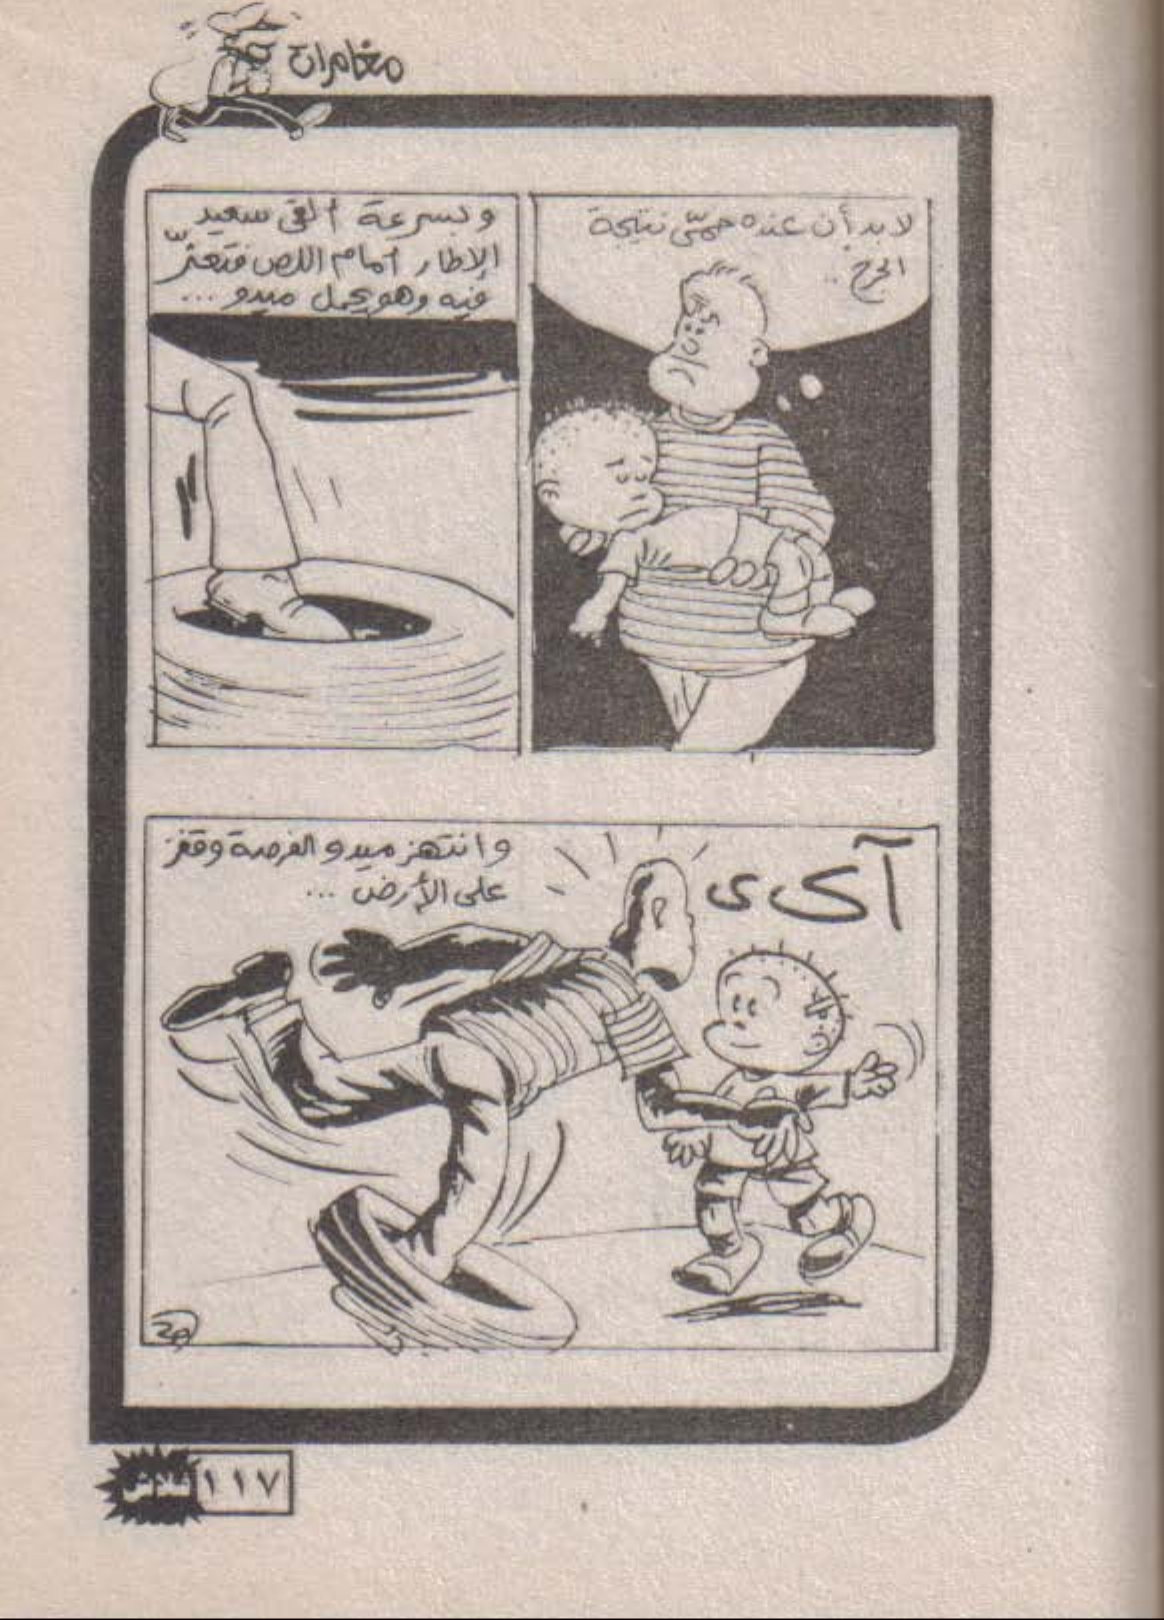 مغامرات
لا بد أن عنده حمّى نتيجة
الجرح ..
وبسرعة ألقى سعيد
الإطار أمام اللص فتعثّر
فيه وهو يحمل ميدو ...
آى ى
وانتهز ميدو الفرصة وقفز
على الأرض ...
١١٧ فلاش